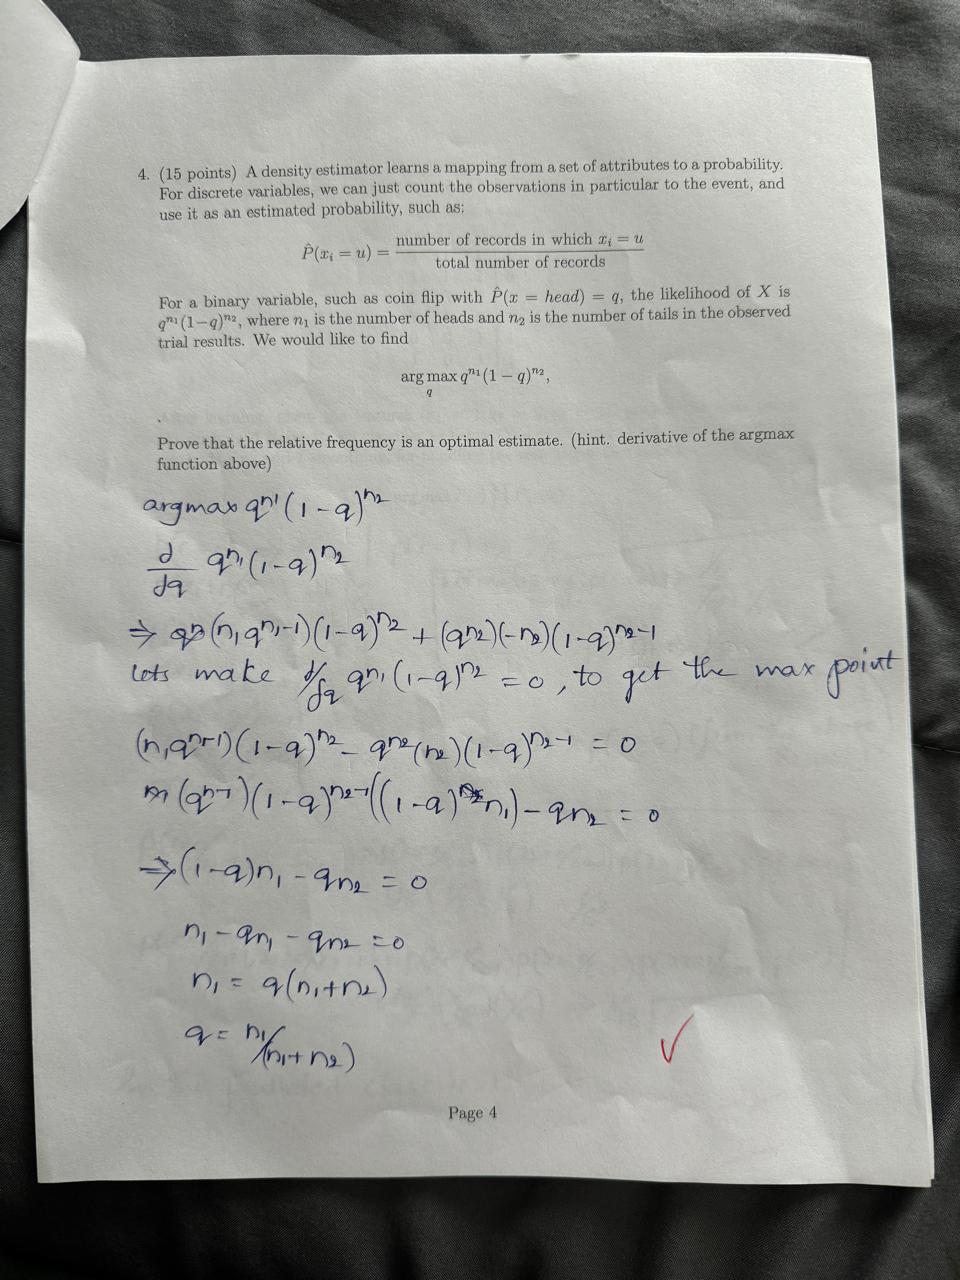 4. (15 points) A density estimator learns a mapping from a set of attributes to a probability.
For discrete variables, we can just count the observations in particular to the event, and
use it as an estimated probability, such as:
P̂(xᵢ = u) = number of records in which xᵢ = u / total number of records
For a binary variable, such as coin flip with P̂(x = head) = q, the likelihood of X is
q^{n₁}(1−q)^{n₂}, where n₁ is the number of heads and n₂ is the number of tails in the observed
trial results. We would like to find
arg max_q q^{n₁}(1 − q)^{n₂},
Prove that the relative frequency is an optimal estimate. (hint. derivative of the argmax
function above)
argmax q^{n1}(1-q)^{n₂}
d/dq q^{n₁}(1-q)^{n₂}
⇒ (n₁q^{n₁-1})(1-q)^{n₂} + (q^{n₂})(-n₂)(1-q)^{n₂-1}
lets make d/dq q^{n₁}(1-q)^{n₂} = 0, to get the max point
(n₁q^{n-1})(1-q)^{n₂} - q^{n₂}(n₂)(1-q)^{n₂-1} = 0
(q^{n-1})(1-q)^{n₂-1}((1-q)n₁) - qn₂ = 0
⇒ (1-q)n₁ - qn₂ = 0
n₁ - qn₁ - qn₂ = 0
n₁ = q(n₁+n₂)
q = n₁/(n₁+n₂)
✓
Page 4